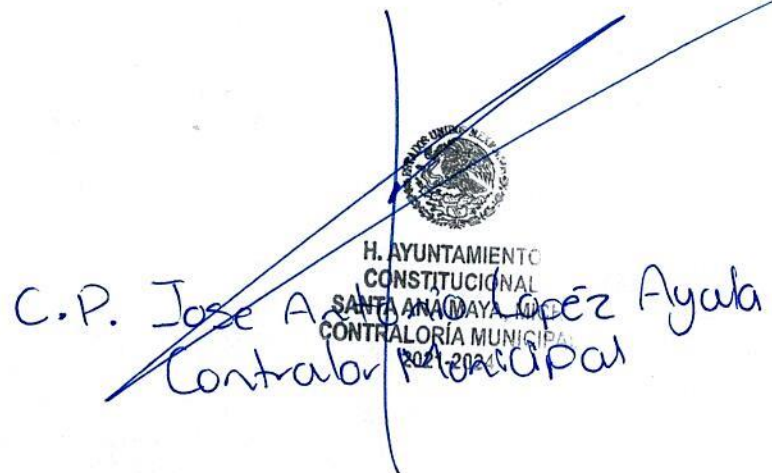 ESTADOS UNIDOS MEXICANOS
H. AYUNTAMIENTO
CONSTITUCIONAL
SANTA ANA MAYA, MICH
CONTRALORÍA MUNICIPAL
2021-2024
C.P. Jose Antonio Lopéz Ayala
Contralor Municipal